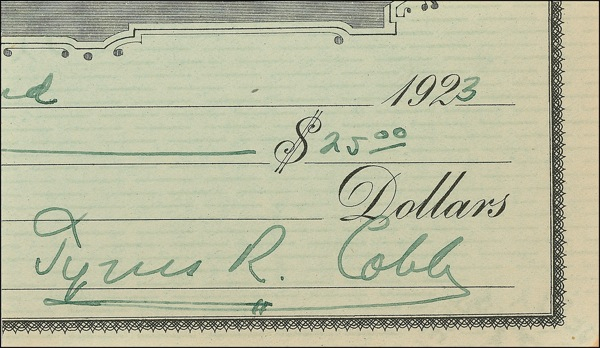 1923
$ 25 00
Dollars
Tyrus R. Cobb